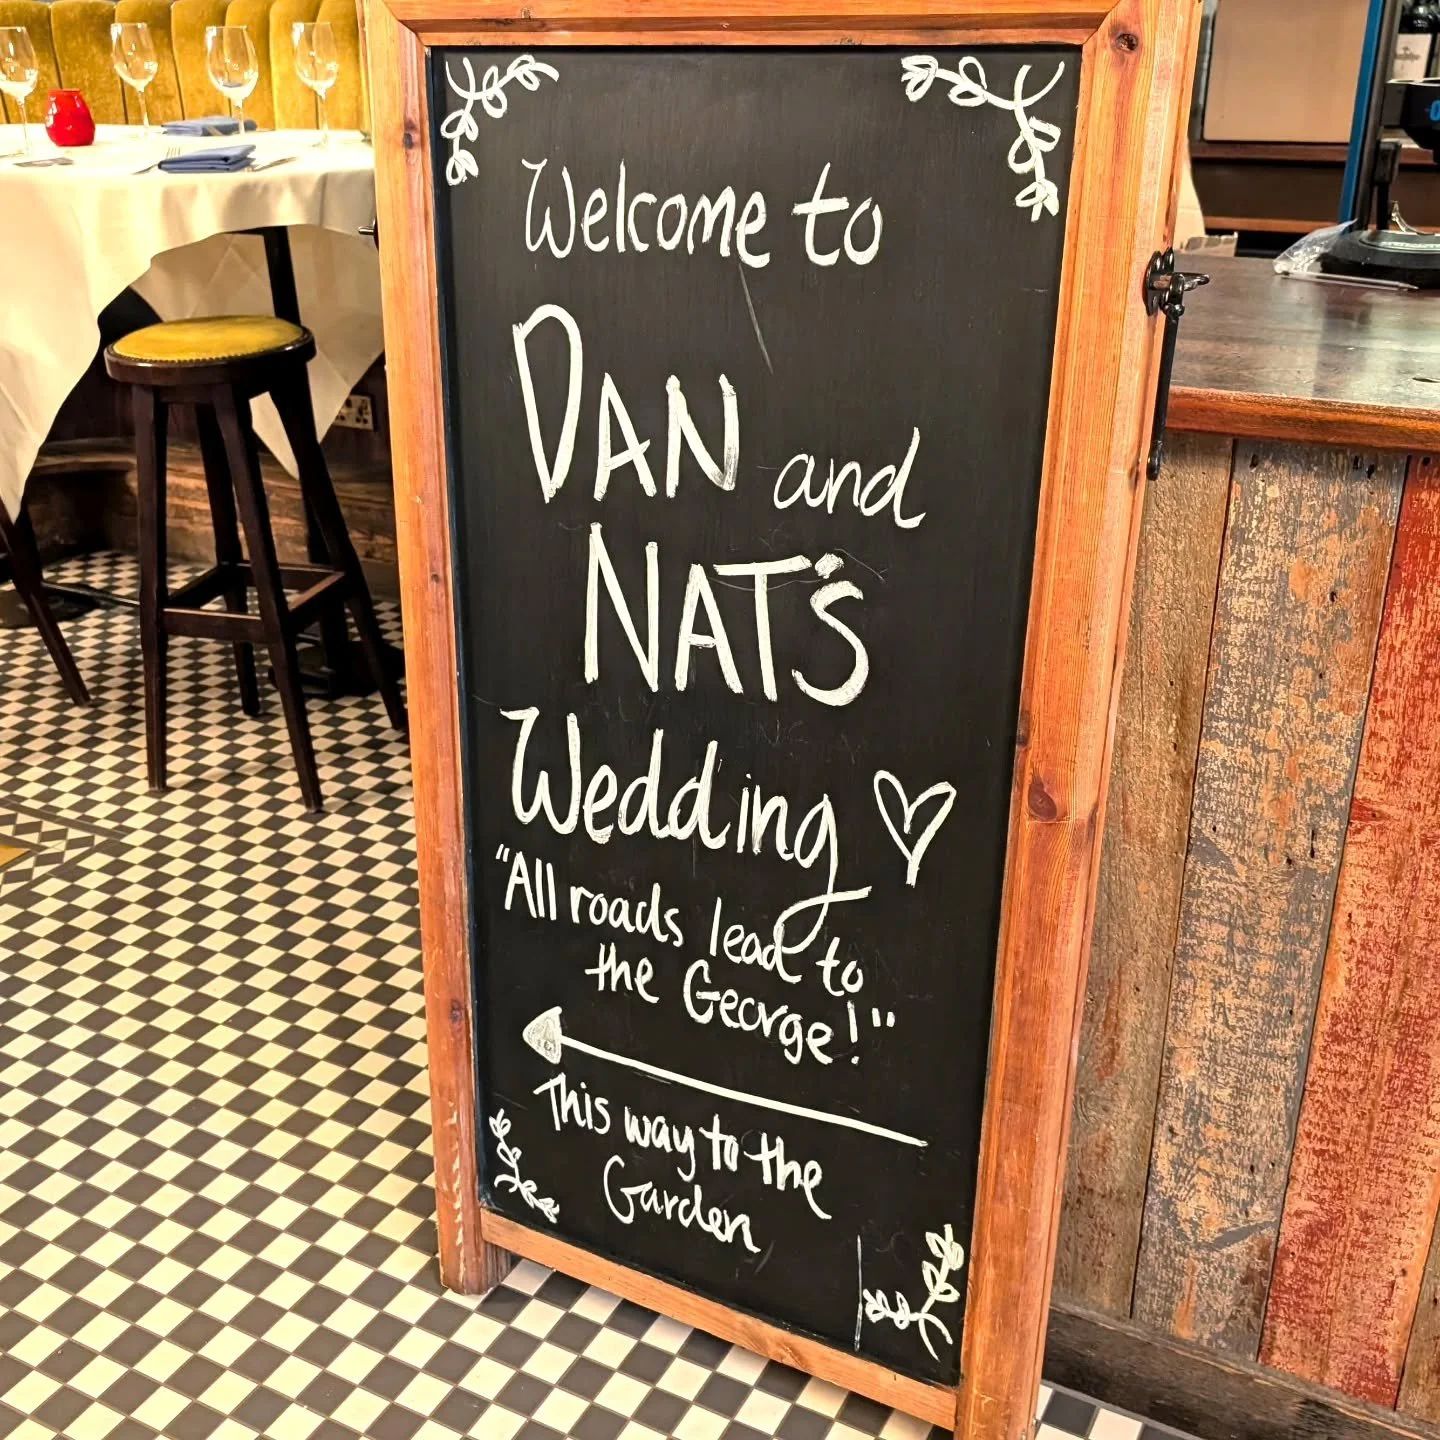 Welcome to
DAN and
NAT'S
Wedding
"All roads lead to
the George!"
This way to the
Garden